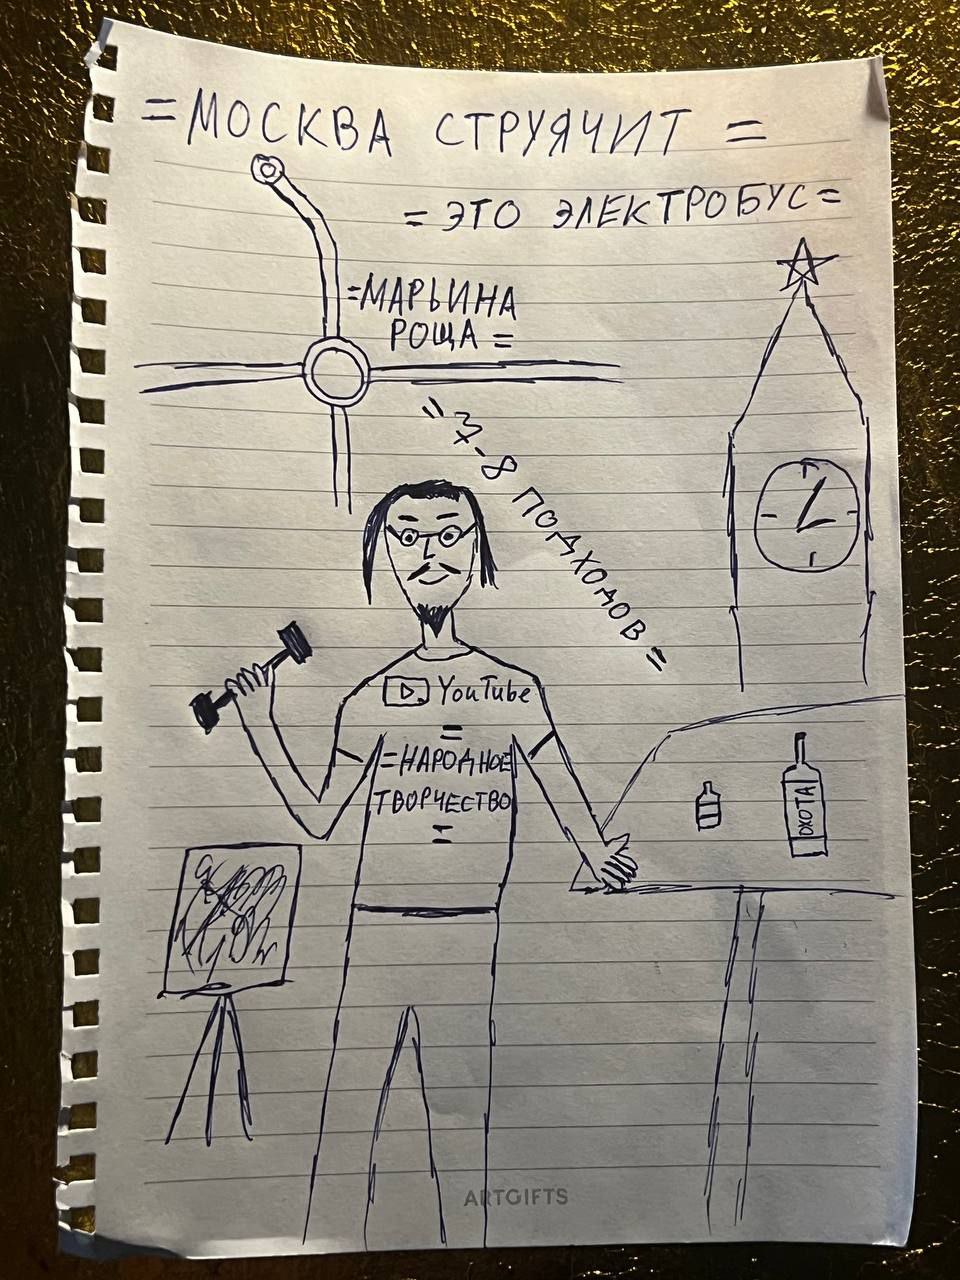 =МОСКВА СТРУЯЧИТ=
=ЭТО ЭЛЕКТРОБУС=
=МАРЬИНА
РОЩА=
=3-8 ПОДХОДОВ=
YouTube
=
=НАРОДНОЕ
ТВОРЧЕСТВО
=
ОХОТА
ARTGIFTS